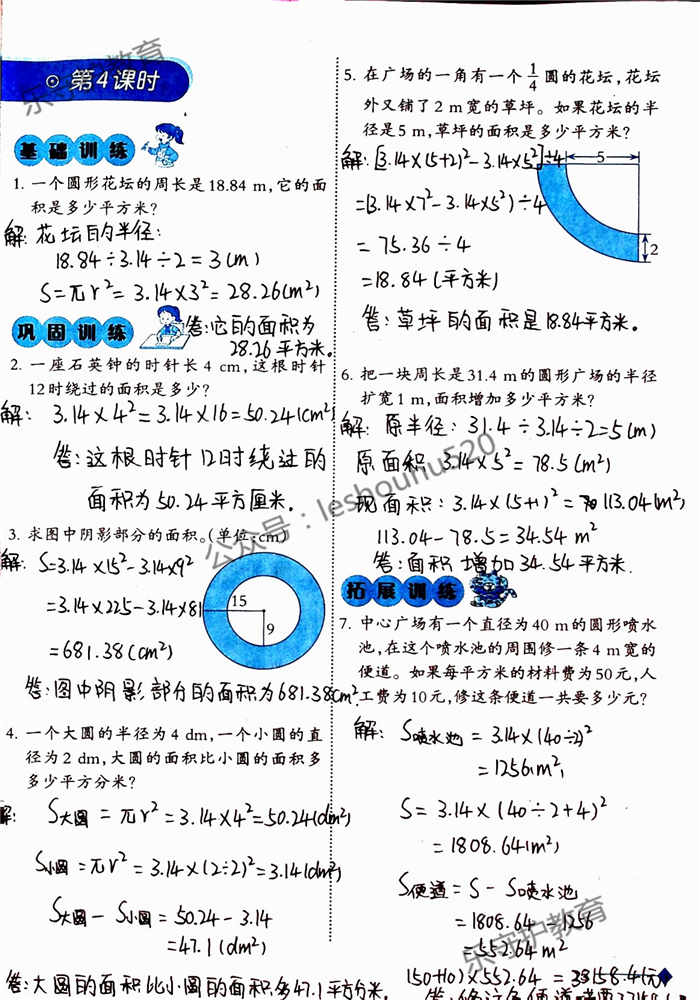 第4课时
基础训练
1. 一个圆形花坛的周长是18.84 m,它的面
积是多少平方米?
解: 花坛的半径:
18.84÷3.14÷2=3(m)
S=πr²=3.14×3²=28.26(m²)
答:它的面积为
28.26平方米。
巩固训练
2. 一座石英钟的时针长4 cm,这根时针
12时绕过的面积是多少?
解: 3.14×4²=3.14×16=50.24(cm²)
答:这根时针12时绕过的
面积为50.24平方厘米。
3. 求图中阴影部分的面积。(单位:cm)
解: S=3.14×15²-3.14×9²
=3.14×225-3.14×81
=681.38(cm²)
15
9
答:图中阴影部分的面积为681.38cm²
4. 一个大圆的半径为4 dm,一个小圆的直
径为2 dm,大圆的面积比小圆的面积多
多少平方分米?
解: S大圆=πr²=3.14×4²=50.24(dm²)
S小圆=πr²=3.14×(2÷2)²=3.14(dm²)
S大圆-S小圆=50.24-3.14
=47.1(dm²)
答:大圆的面积比小圆的面积多47.1平方分米
5. 在广场的一角有一个1/4圆的花坛,花坛
外又铺了2 m宽的草坪。如果花坛的半
径是5 m,草坪的面积是多少平方米?
解:[3.14×(5+2)²-3.14×5²]÷4
=(3.14×7²-3.14×5²)÷4
=75.36÷4
=18.84(平方米)
5
2
答:草坪的面积是18.84平方米。
6. 把一块周长是31.4 m的圆形广场的半径
扩宽1 m,面积增加多少平方米?
解:原半径:31.4÷3.14÷2=5(m)
原面积 3.14×5²=78.5(m²)
现面积:3.14×(5+1)²=113.04(m²)
113.04-78.5=34.54 m²
答:面积增加34.54平方米.
拓展训练
7. 中心广场有一个直径为40 m的圆形喷水
池,在这个喷水池的周围修一条4 m宽的
便道。如果每平方米的材料费为50元,人
工费为10元,修这条便道一共要多少元?
解: S喷水池=3.14×(40÷2)²
=1256(m²)
S=3.14×(40÷2+4)²
=1808.64(m²)
S便道=S-S喷水池
=1808.64-1256
=552.64 m²
(50+10)×552.64=33158.4(元)
答:修这条便道要
乐守护教育
公众号:leshouhu520
乐守护教育